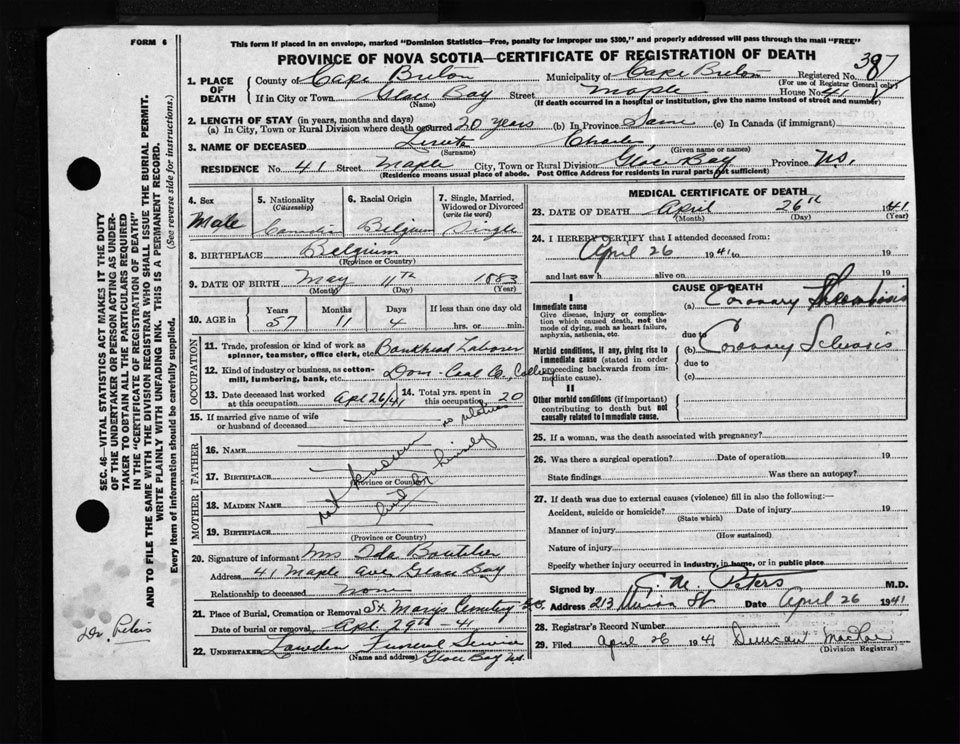 FORM 6
This form if placed in an envelope, marked "Dominion Statistics—Free, penalty for improper use $300," and properly addressed will pass through the mail "FREE"
PROVINCE OF NOVA SCOTIA—CERTIFICATE OF REGISTRATION OF DEATH
387
1. PLACE OF DEATH County of Cape Breton Municipality of Cape Breton Registered No.
(For use of Registrar General only)
If in City or Town Glace Bay Street Maple House No. 41
(Name) (If death occurred in a hospital or institution, give the name instead of street and number)
2. LENGTH OF STAY (in years, months and days)
(a) In City, Town or Rural Division where death occurred 20 years (b) In Province Same (c) In Canada (if immigrant)
3. NAME OF DECEASED Charles
(Surname) (Given name or names)
RESIDENCE No. 41 Street Maple City, Town or Rural Division Glace Bay Province N.S.
(Residence means usual place of abode. Post Office Address for residents in rural parts not sufficient)
4. Sex Male
5. Nationality (Citizenship) Canadian
6. Racial Origin Belgium
7. Single, Married, Widowed or Divorced (write the word) Single
8. BIRTHPLACE Belgium
(Province or Country)
9. DATE OF BIRTH May 11th 1883
(Month) (Day) (Year)
10. AGE in Years Months Days If less than one day old
57 11 4 hrs. or min.
OCCUPATION
11. Trade, profession or kind of work as spinner, teamster, office clerk, etc. Bankhead Laborer
12. Kind of industry or business, as cotton-mill, lumbering, bank, etc. Dom. Coal Co.,
13. Date deceased last worked at this occupation Apl 26/41
14. Total yrs. spent in this occupation 20
15. If married give name of wife or husband of deceased
no relatives
FATHER
16. Name
17. BIRTHPLACE
(Province or Country)
MOTHER
18. MAIDEN NAME
19. BIRTHPLACE
(Province or Country)
not known
20. Signature of informant Mrs Ida Boutilier
Address 41 Maple Ave Glace Bay
Relationship to deceased Non
21. Place of Burial, Cremation or Removal St Marys Cemetery
Date of burial or removal Apl. 29th - 41
22. UNDERTAKER Funeral Service
(Name and address) Glace Bay NS.
MEDICAL CERTIFICATE OF DEATH
23. DATE OF DEATH April 26th 1941
(Month) (Day) (Year)
24. I HEREBY CERTIFY that I attended deceased from:
April 26 1941 to 19
and last saw h alive on 19
CAUSE OF DEATH
I
Immediate cause
Give disease, injury or complication which caused death, not the mode of dying, such as heart failure, asphyxia, asthenia, etc.
(a) Coronary Thrombosis
due to
Morbid conditions, if any, giving rise to immediate cause (stated in order proceeding backwards from immediate cause).
(b) Coronary Sclerosis
due to
(c)
II
Other morbid conditions (if important) contributing to death but not causally related to immediate cause.
25. If a woman, was the death associated with pregnancy?
26. Was there a surgical operation? Date of operation 19
State findings Was there an autopsy?
27. If death was due to external causes (violence) fill in also the following:—
Accident, suicide or homicide? Date of injury 19
(State which)
Manner of injury
(How sustained)
Nature of injury
Specify whether injury occurred in industry, in home, or in public place
Signed by Peters M.D.
Address 213 St. Date April 26 1941
28. Registrar's Record Number
29. Filed April 26 1941 Duncan
(Division Registrar)
SEC. 46—VITAL STATISTICS ACT MAKES IT THE DUTY
OF THE UNDERTAKER OR PERSON ACTING AS UNDERTAKER
TO OBTAIN ALL THE PARTICULARS REQUIRED
IN THE "CERTIFICATE OF REGISTRATION OF DEATH"
AND TO FILE THE SAME WITH THE DIVISION REGISTRAR WHO SHALL ISSUE THE BURIAL PERMIT.
WRITE PLAINLY WITH UNFADING INK. THIS IS A PERMANENT RECORD.
Every item of information should be carefully supplied. (See reverse side for instructions.)
Dr. Peters